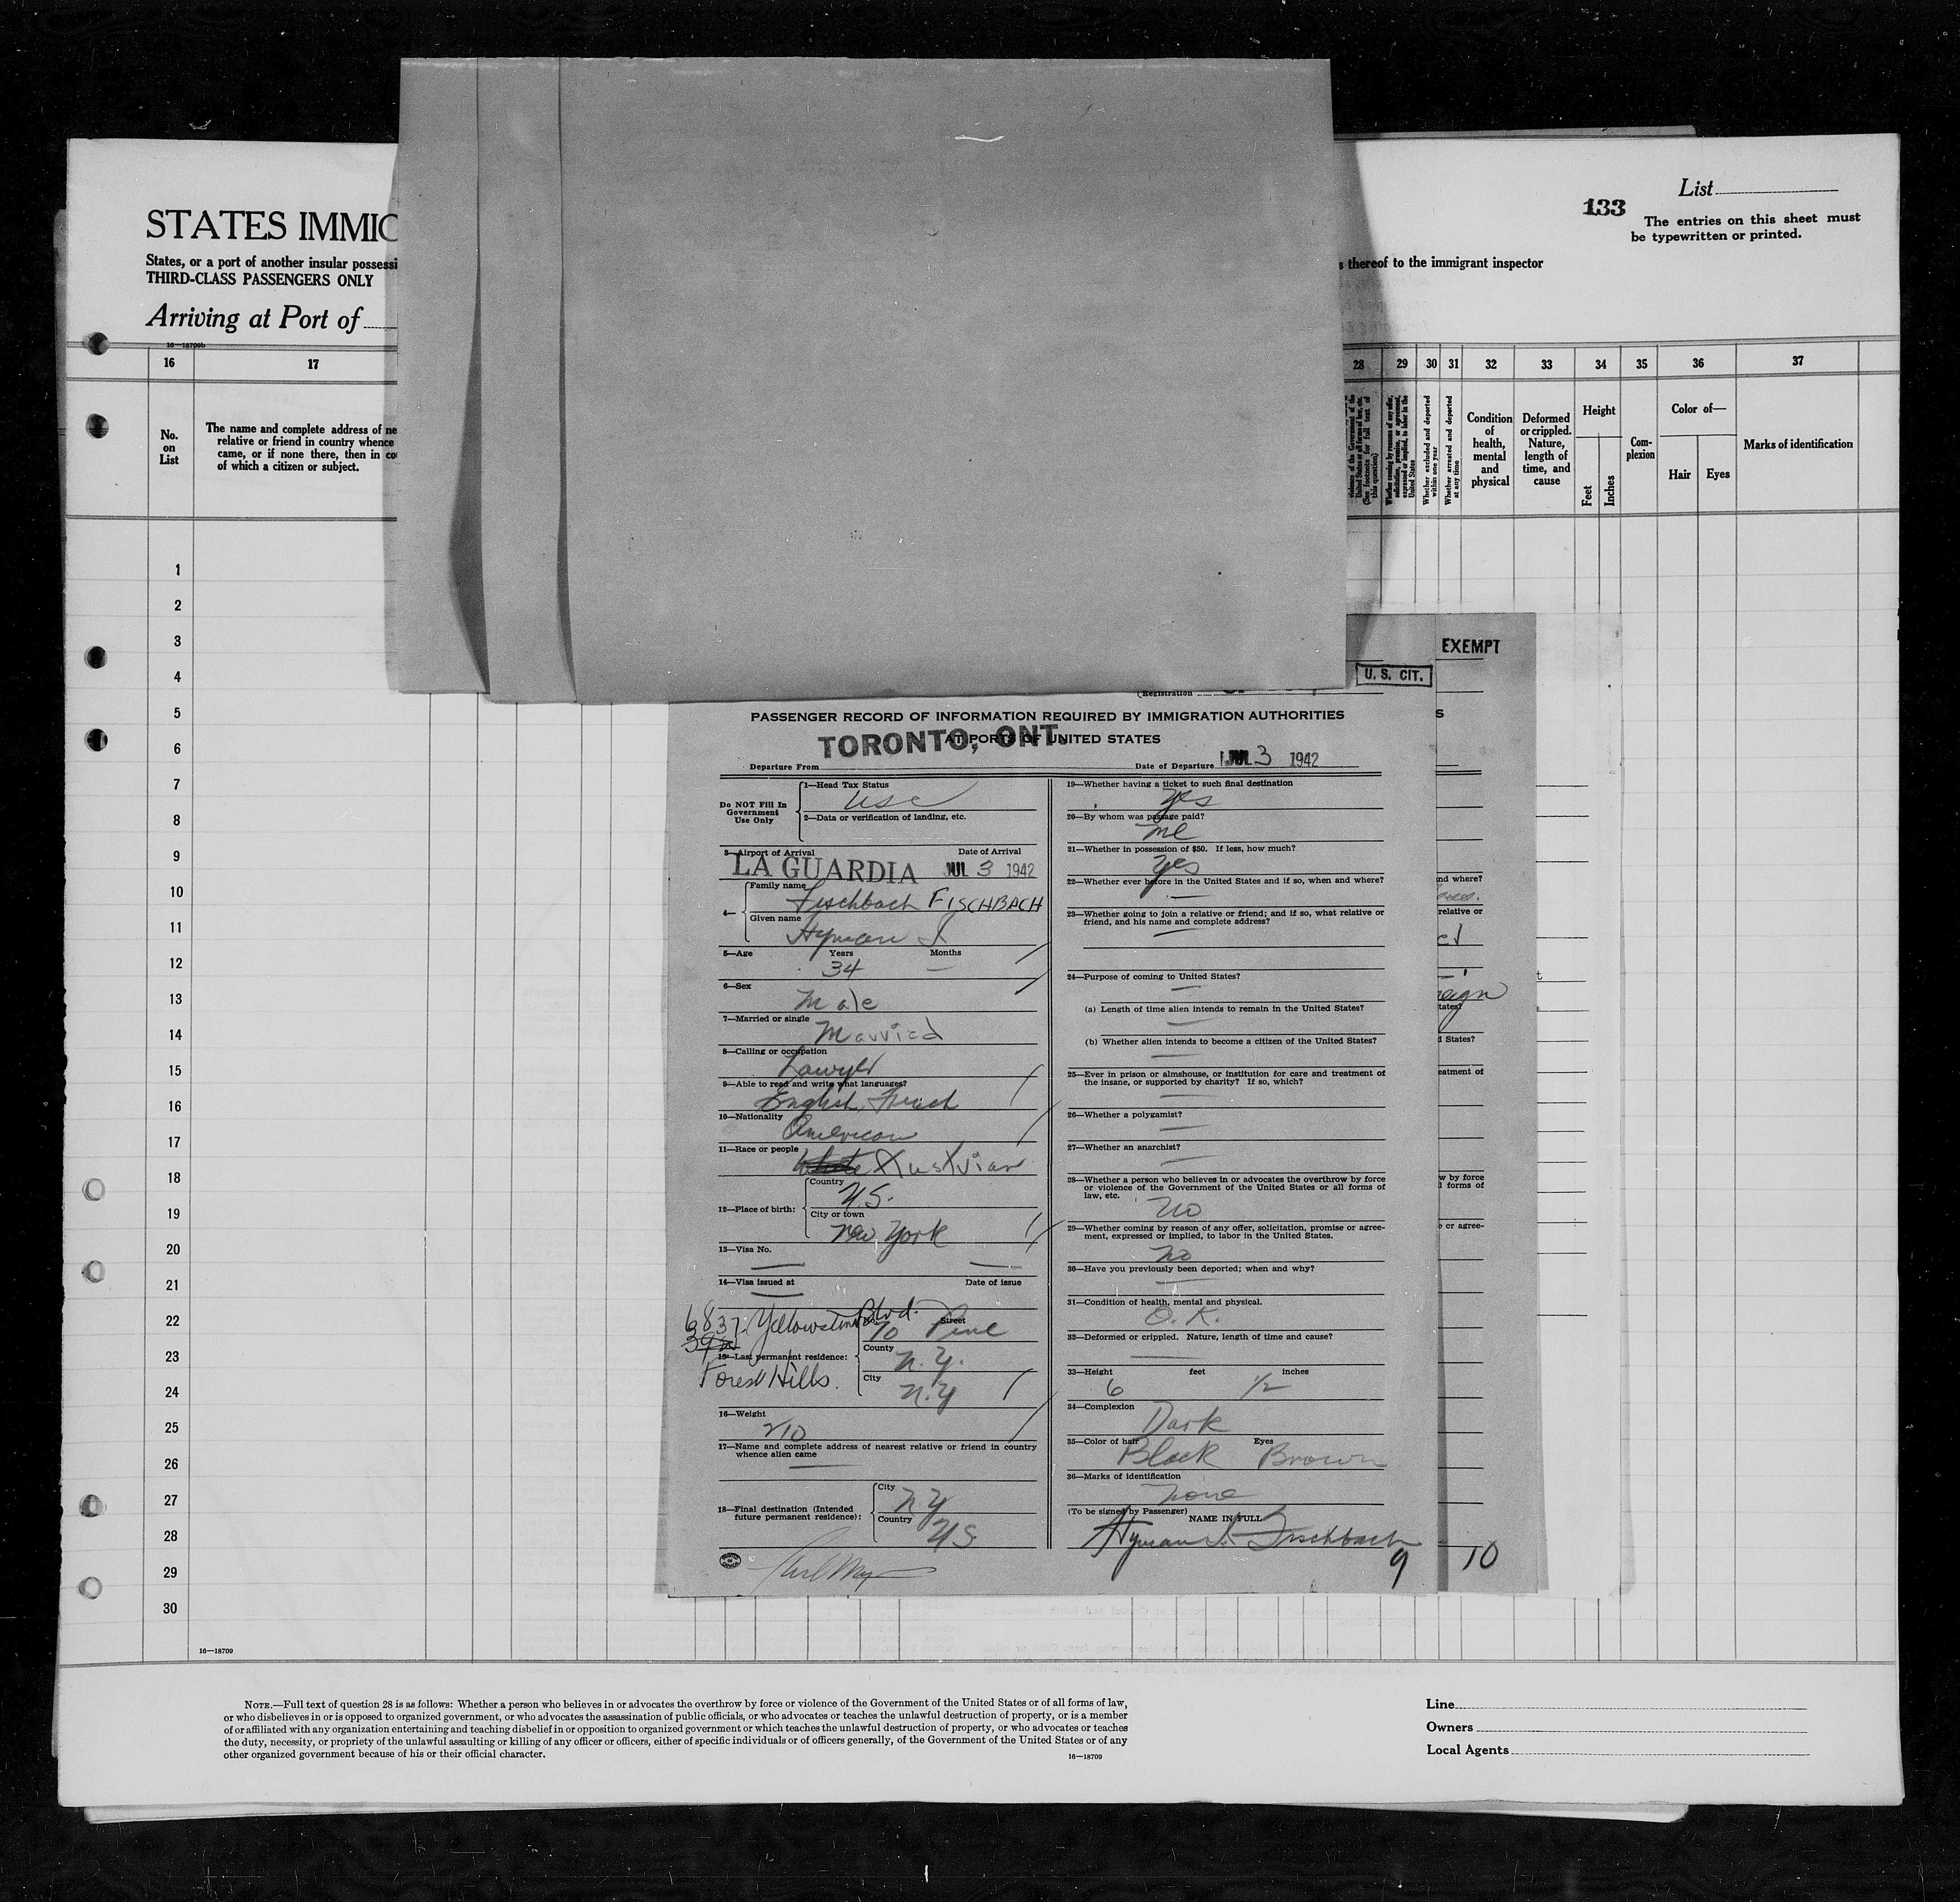 List
133
The entries on this sheet must
be typewritten or printed.
STATES IMMIG
States, or a port of another insular possessi
s thereof to the immigrant inspector
THIRD-CLASS PASSENGERS ONLY
Arriving at Port of
16—18709b
16 17 28 29 30 31 32 33 34 35 36 37
No.
on
List
The name and complete address of ne
relative or friend in country whence
came, or if none there, then in co
of which a citizen or subject.
violence of the Government of the
United States or all forms of law, etc.
(See footnote for full text of
this question)
Whether coming by reasons of any offer,
solicitation, promise, or agreement,
expressed or implied, to labor in the
United States
Whether excluded and deported
within one year
Whether arrested and deported
at any time
Condition
of
health,
mental
and
physical
Deformed
or crippled.
Nature,
length of
time, and
cause
Height
Feet
Inches
Com-
plexion
Color of—
Hair
Eyes
Marks of identification
1
2
3
4
5
6
7
8
9
10
11
12
13
14
15
16
17
18
19
20
21
22
23
24
25
26
27
28
29
30
16—18709
EXEMPT
U. S. CIT.
(Registration
PASSENGER RECORD OF INFORMATION REQUIRED BY IMMIGRATION AUTHORITIES
AT PORTS OF UNITED STATES
TORONTO, ONT.
Departure From
Date of Departure JUL 3 1942
Do NOT Fill In
Government
Use Only
1—Head Tax Status
USC
2—Data or verification of landing, etc.
3—Airport of Arrival Date of Arrival
LA GUARDIA JUL 3 1942
4—
Family name
Fischbach FISCHBACH
Given name
Hyman I
5—Age Years Months
34 —
6—Sex
Male
7—Married or single
Married
8—Calling or occupation
Lawyer
9—Able to read and write what languages?
English French
10—Nationality
American
11—Race or people
White Austrian
12—Place of birth:
Country
U.S.
City or town
New York
13—Visa No.
14—Visa issued at Date of issue
6837 Yellowstone Blvd.
Street
70 Pine
15—Last permanent residence:
County
N.Y.
Forest Hills.
City
N.Y
16—Weight
210
17—Name and complete address of nearest relative or friend in country
whence alien came
18—Final destination (Intended
future permanent residence):
City
NY
Country
US
19—Whether having a ticket to such final destination
Yes
20—By whom was passage paid?
me
21—Whether in possession of $50. If less, how much?
Yes
22—Whether ever before in the United States and if so, when and where?
23—Whether going to join a relative or friend; and if so, what relative or
friend, and his name and complete address?
24—Purpose of coming to United States?
(a) Length of time alien intends to remain in the United States?
(b) Whether alien intends to become a citizen of the United States?
25—Ever in prison or almshouse, or institution for care and treatment of
the insane, or supported by charity? If so, which?
26—Whether a polygamist?
27—Whether an anarchist?
28—Whether a person who believes in or advocates the overthrow by force
or violence of the Government of the United States or all forms of
law, etc.
No
29—Whether coming by reason of any offer, solicitation, promise or agree-
ment, expressed or implied, to labor in the United States.
No
30—Have you previously been deported; when and why?
31—Condition of health, mental and physical.
O.K.
32—Deformed or crippled. Nature, length of time and cause?
33—Height feet inches
6 1/2
34—Complexion
Dark
35—Color of hair Eyes
Black Brown
36—Marks of identification
none
(To be signed by Passenger)
NAME IN FULL
Hyman I. Fischbach
9
10
S
nd where?
relative or
eign
tates?
d States?
eatment of
w by force
l forms of
e or agree-
NOTE.—Full text of question 28 is as follows: Whether a person who believes in or advocates the overthrow by force or violence of the Government of the United States or of all forms of law,
or who disbelieves in or is opposed to organized government, or who advocates the assassination of public officials, or who advocates or teaches the unlawful destruction of property, or is a member
of or affiliated with any organization entertaining and teaching disbelief in or opposition to organized government or which teaches the unlawful destruction of property, or who advocates or teaches
the duty, necessity, or propriety of the unlawful assaulting or killing of any officer or officers, either of specific individuals or of officers generally, of the Government of the United States or of any
other organized government because of his or their official character.
16—18709
Line
Owners
Local Agents